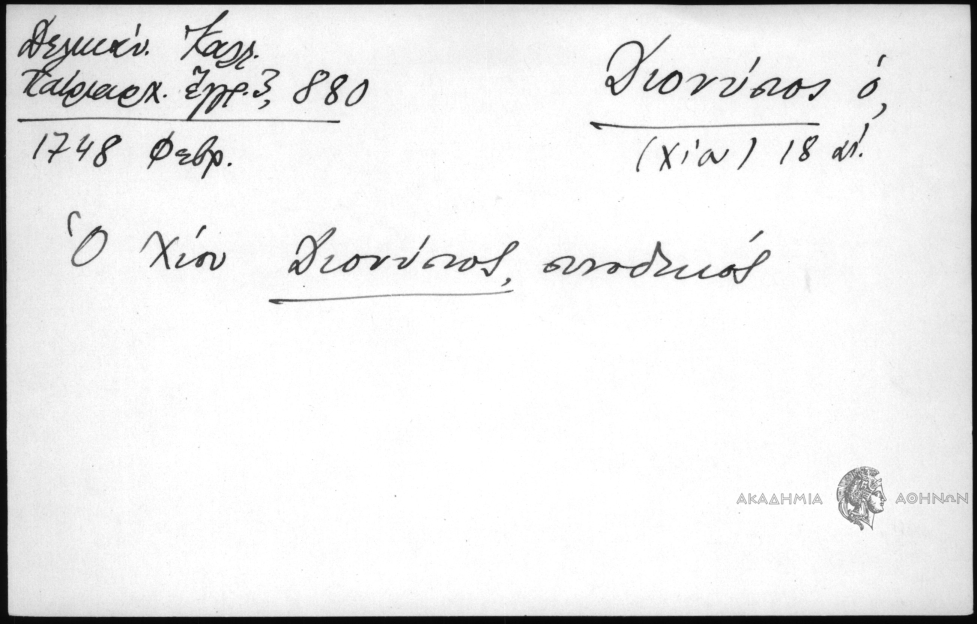 Δελικάν. Καλλ.
Πατριαρχ. Ἔγγρ. 3, 880
1748 Φεβρ.
Διονύσιος ὁ,
(Χίου) 18 αἰ.
Ὁ Χίου Διονύσιος, συνοδικός
ΑΚΑΔΗΜΙΑ ΑΘΗΝΩΝ